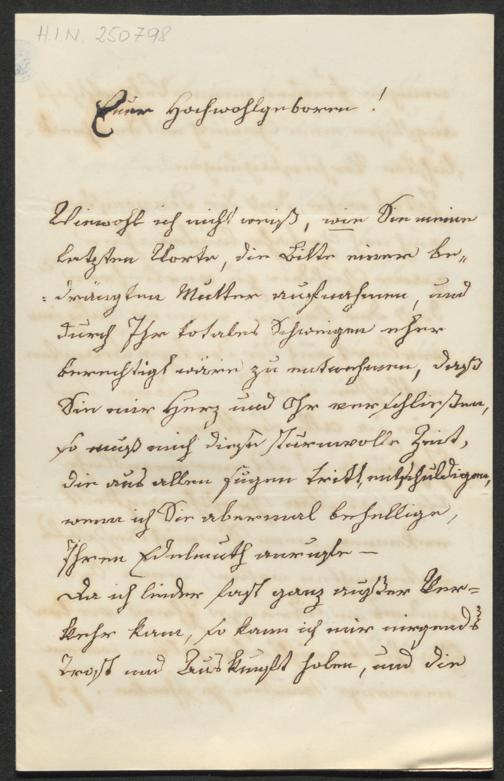 H.I.N. 250798
Euer Hochwohlgeboren!
Wiewohl ich nicht weiß, wie Sie meine
letzten Worte, die Bitte einer be-
drängten Mutter aufnahmen, und
durch Ihr totales Schweigen eher
berechtigt wäre zu entnehmen, daß
Sie mir Herz und Ohr verschließen,
so muß mich diese sturmvolle Zeit,
die aus allen Fugen tritt, entschuldigen,
wenn ich Sie abermal behellige,
Ihren Edelmuth anrufe –
Da ich leider fast ganz außer Ver-
kehr kam, so kann ich mir nirgends
Trost und Auskunft holen, und die